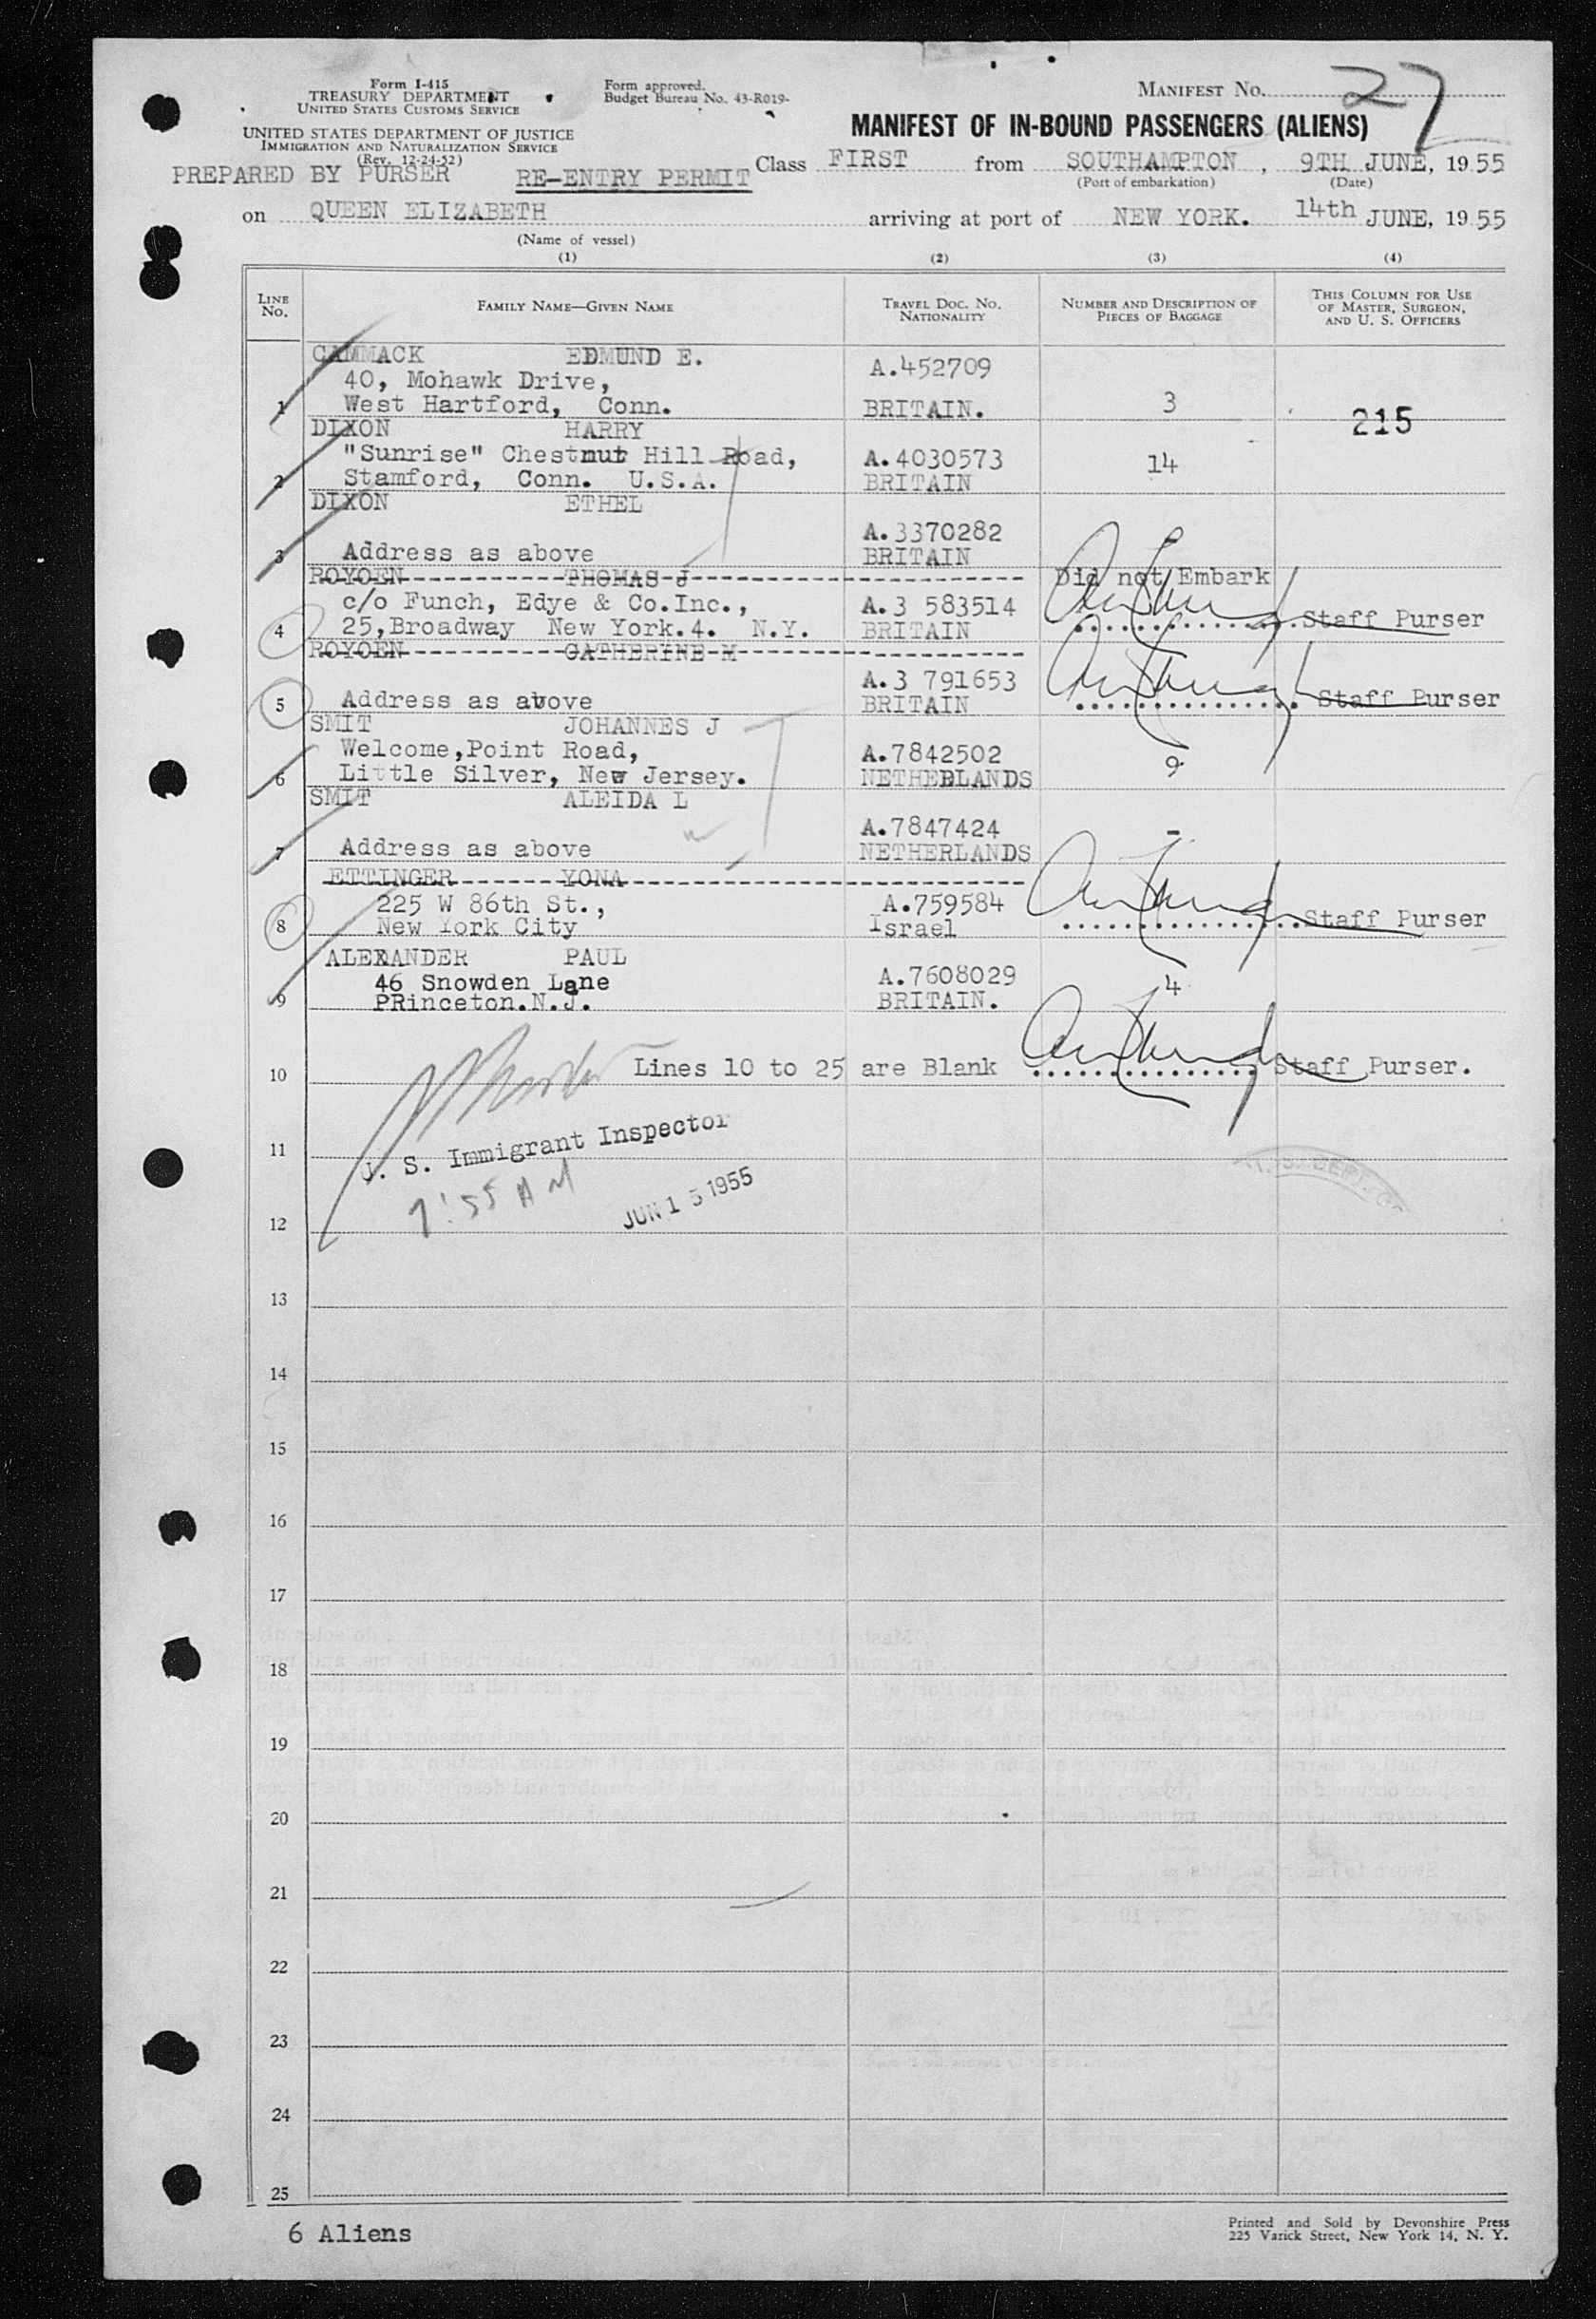 Form I-415
TREASURY DEPARTMENT
UNITED STATES CUSTOMS SERVICE
UNITED STATES DEPARTMENT OF JUSTICE
IMMIGRATION AND NATURALIZATION SERVICE
(Rev. 12-24-52)
Form approved.
Budget Bureau No. 43-R019-
MANIFEST No. 27
MANIFEST OF IN-BOUND PASSENGERS (ALIENS)
PREPARED BY PURSER RE-ENTRY PERMIT Class FIRST from SOUTHAMPTON, 9TH JUNE, 1955
(Port of embarkation) (Date)
on QUEEN ELIZABETH arriving at port of NEW YORK. 14th JUNE, 1955
(Name of vessel)
(1) (2) (3) (4)
LINE No. FAMILY NAME—GIVEN NAME TRAVEL DOC. NO. NATIONALITY NUMBER AND DESCRIPTION OF PIECES OF BAGGAGE THIS COLUMN FOR USE OF MASTER, SURGEON, AND U. S. OFFICERS
CAMMACK EDMUND E.
40, Mohawk Drive, A.452709
1 West Hartford, Conn. BRITAIN. 3
215
DIXON HARRY
"Sunrise" Chestnut Hill Road, A.4030573 14
2 Stamford, Conn. U.S.A. BRITAIN
DIXON ETHEL
A.3370282 -
3 Address as above BRITAIN
ROYOEN THOMAS J Did not Embark
c/o Funch, Edye & Co.Inc., A.3 583514
4 25,Broadway New York.4. N.Y. BRITAIN Staff Purser
ROYOEN CATHERINE M
A.3 791653
5 Address as above BRITAIN Staff Purser
SMIT JOHANNES J
Welcome,Point Road, A.7842502 9
6 Little Silver, New Jersey. NETHERLANDS
SMIT ALEIDA L
A.7847424 -
7 Address as above NETHERLANDS
ETTINGER YONA
225 W 86th St., A.759584
8 New York City Israel Staff Purser
ALEXANDER PAUL
46 Snowden Lane A.7608029 4
9 PRinceton.N.J. BRITAIN.
10 Lines 10 to 25 are Blank Staff Purser.
11
U. S. Immigrant Inspector
7:55 AM
JUN 15 1955
12
13
14
15
16
17
18
19
20
21
22
23
24
25
6 Aliens
Printed and Sold by Devonshire Press
225 Varick Street, New York 14, N. Y.